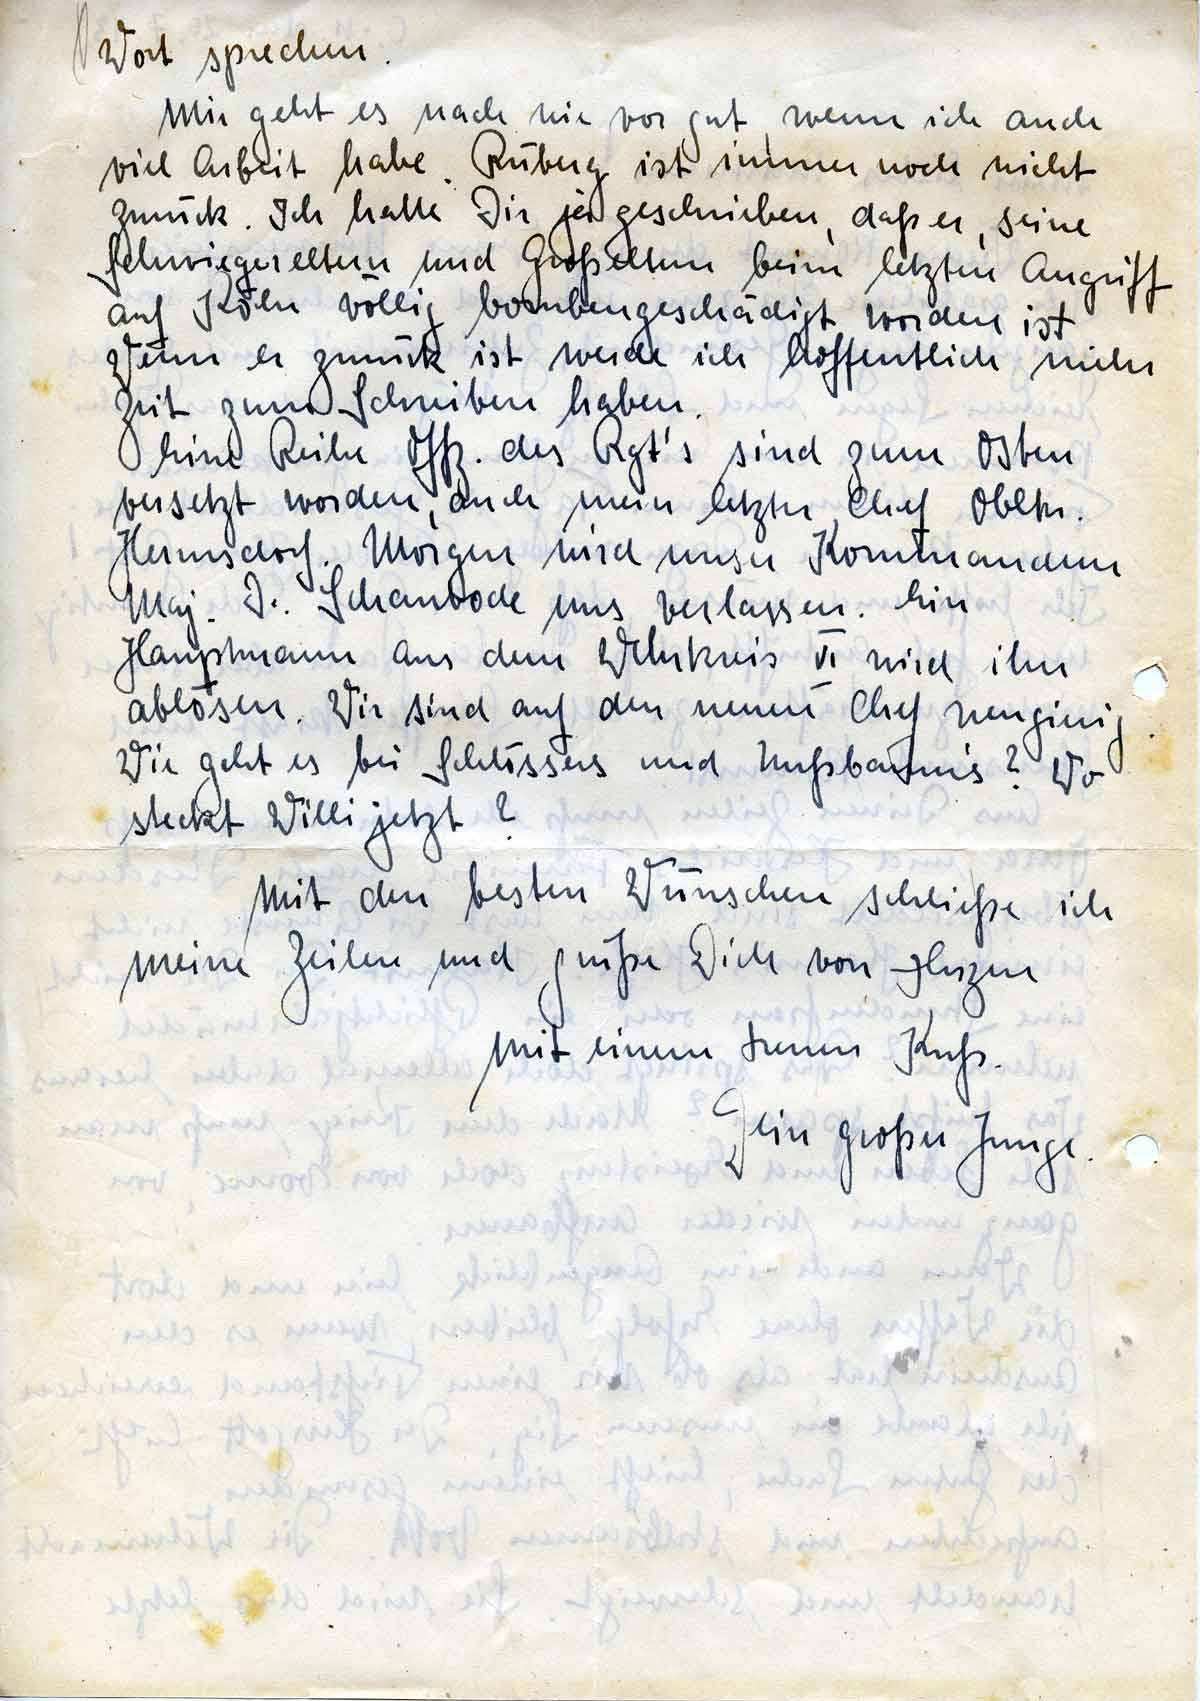 Wort sprechen.
Mir geht es nach wie vor gut, wenn ich auch
viel Arbeit habe. Ruberg ist immer noch nicht
zurück. Ich hatte Dir ja geschrieben, daß er, seine
Schwiegereltern und Großeltern beim letzten Angriff
auf Köln völlig bombengeschädigt worden ist
Wenn er zurück ist werde ich hoffentlich mehr
Zeit zum Schreiben haben.
Eine Reihe Offz. des Rgt's sind zum Osten
versetzt worden, auch mein letzter Chef Obltn.
Hermsdorf. Morgen wird unser Kommandeur
Maj. Dr. uns verlassen. Ein
Hauptmann aus dem Wehrkreis VI wird ihn
ablösen. Wir sind auf den neuen Chef neugierig.
Wie geht es bei Schlössers und Nußbaum's? Wo
steckt Willi jetzt?
Mit den besten Wünschen schließe ich
meine Zeilen und grüße Dich von Herzen
mit einem treuen Kuß.
Dein großer Junge.